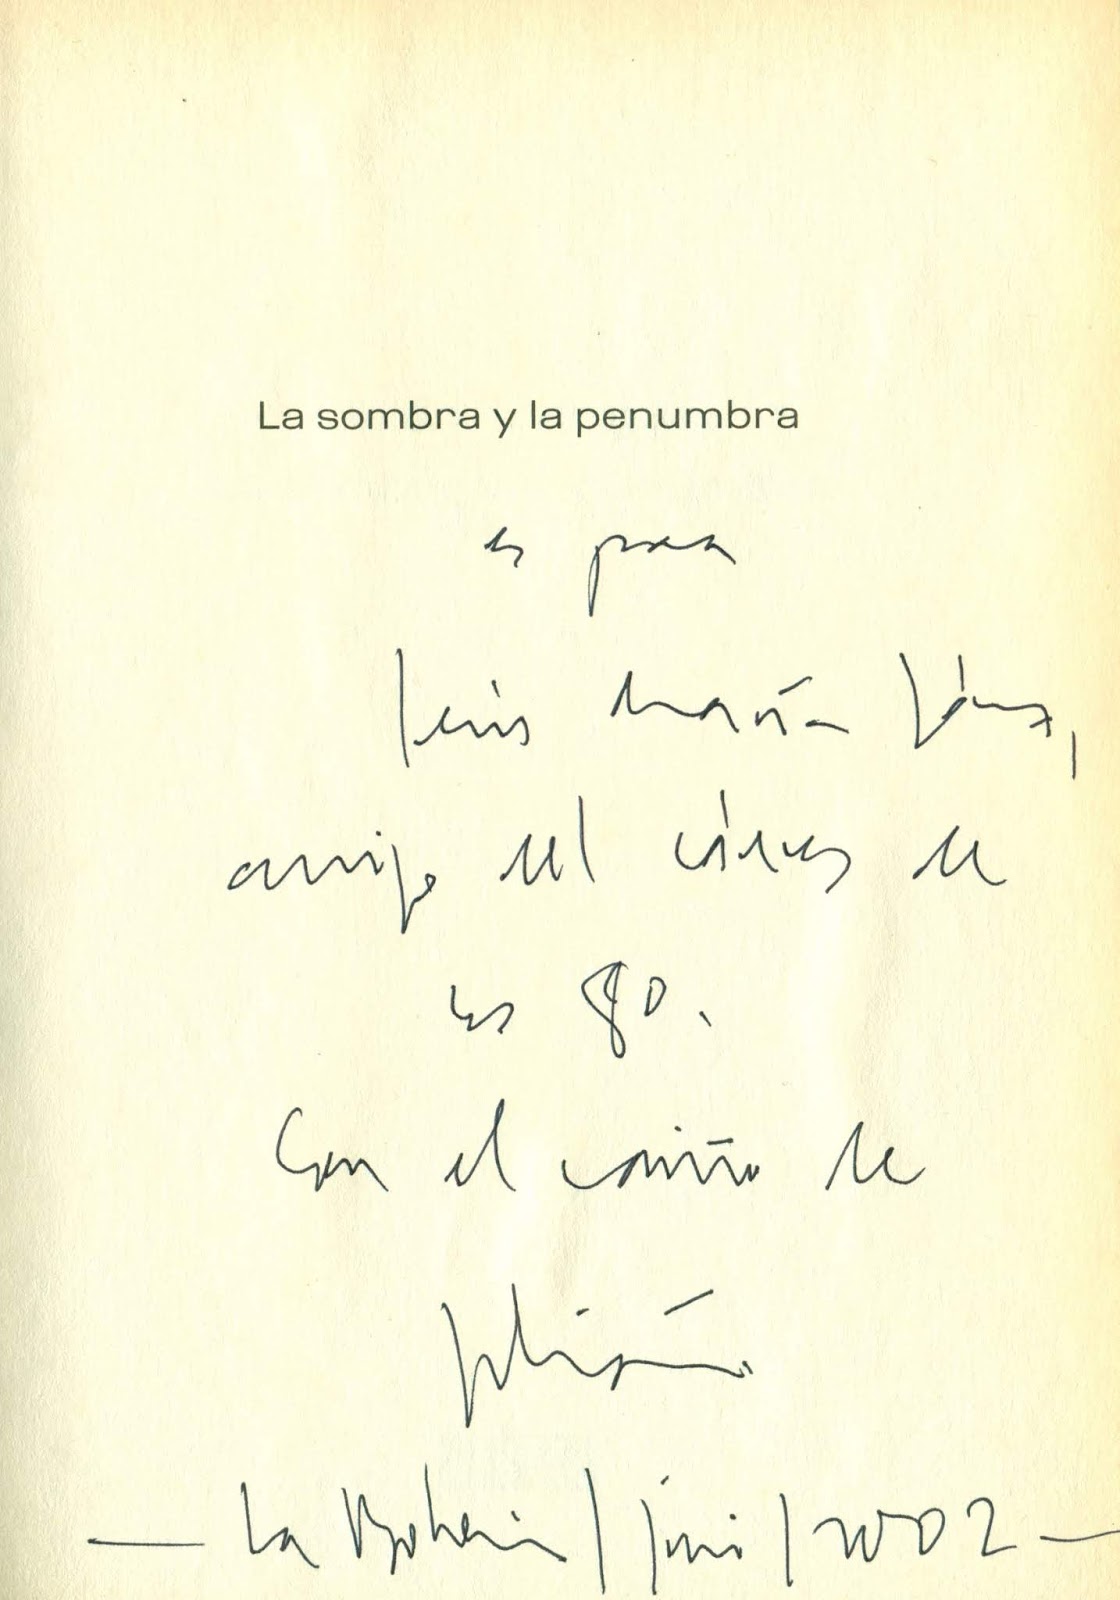 La sombra y la penumbra
es para
Luis María
amigo del cáceres de
los 80.
Con el cariño de
Julián.
— La Bohemia / junio / 2002 —